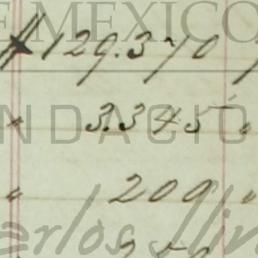 E MEXICO
$ 129.370
NDACIÓ
" 3.345 "
" 200 "
Carlos Sli